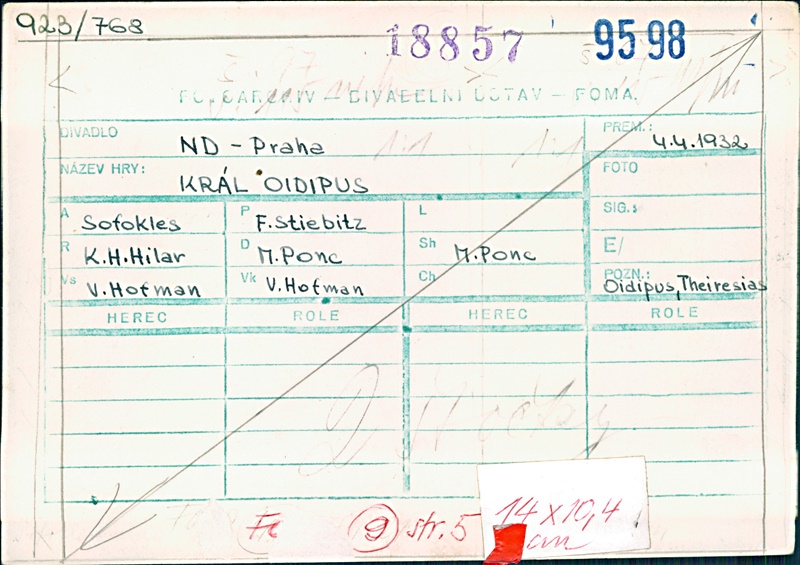 923/768
18857
9598
FOTOARCHIV – DIVADELNÍ ÚSTAV – FOMA
DIVADLO ND - Praha
PREM.: 4.4.1932
NÁZEV HRY: KRÁL OIDIPUS
FOTO
A Sofokles P F. Stiebitz L
SIG.:
R K.H.Hilar D M.Ponc Sh M.Ponc
E/
Vs V.Hofman Vk V.Hofman Ch
POZN.: Oidipus, Theiresias
HEREC ROLE HEREC ROLE
9 str. 5
14 x 10,4
cm